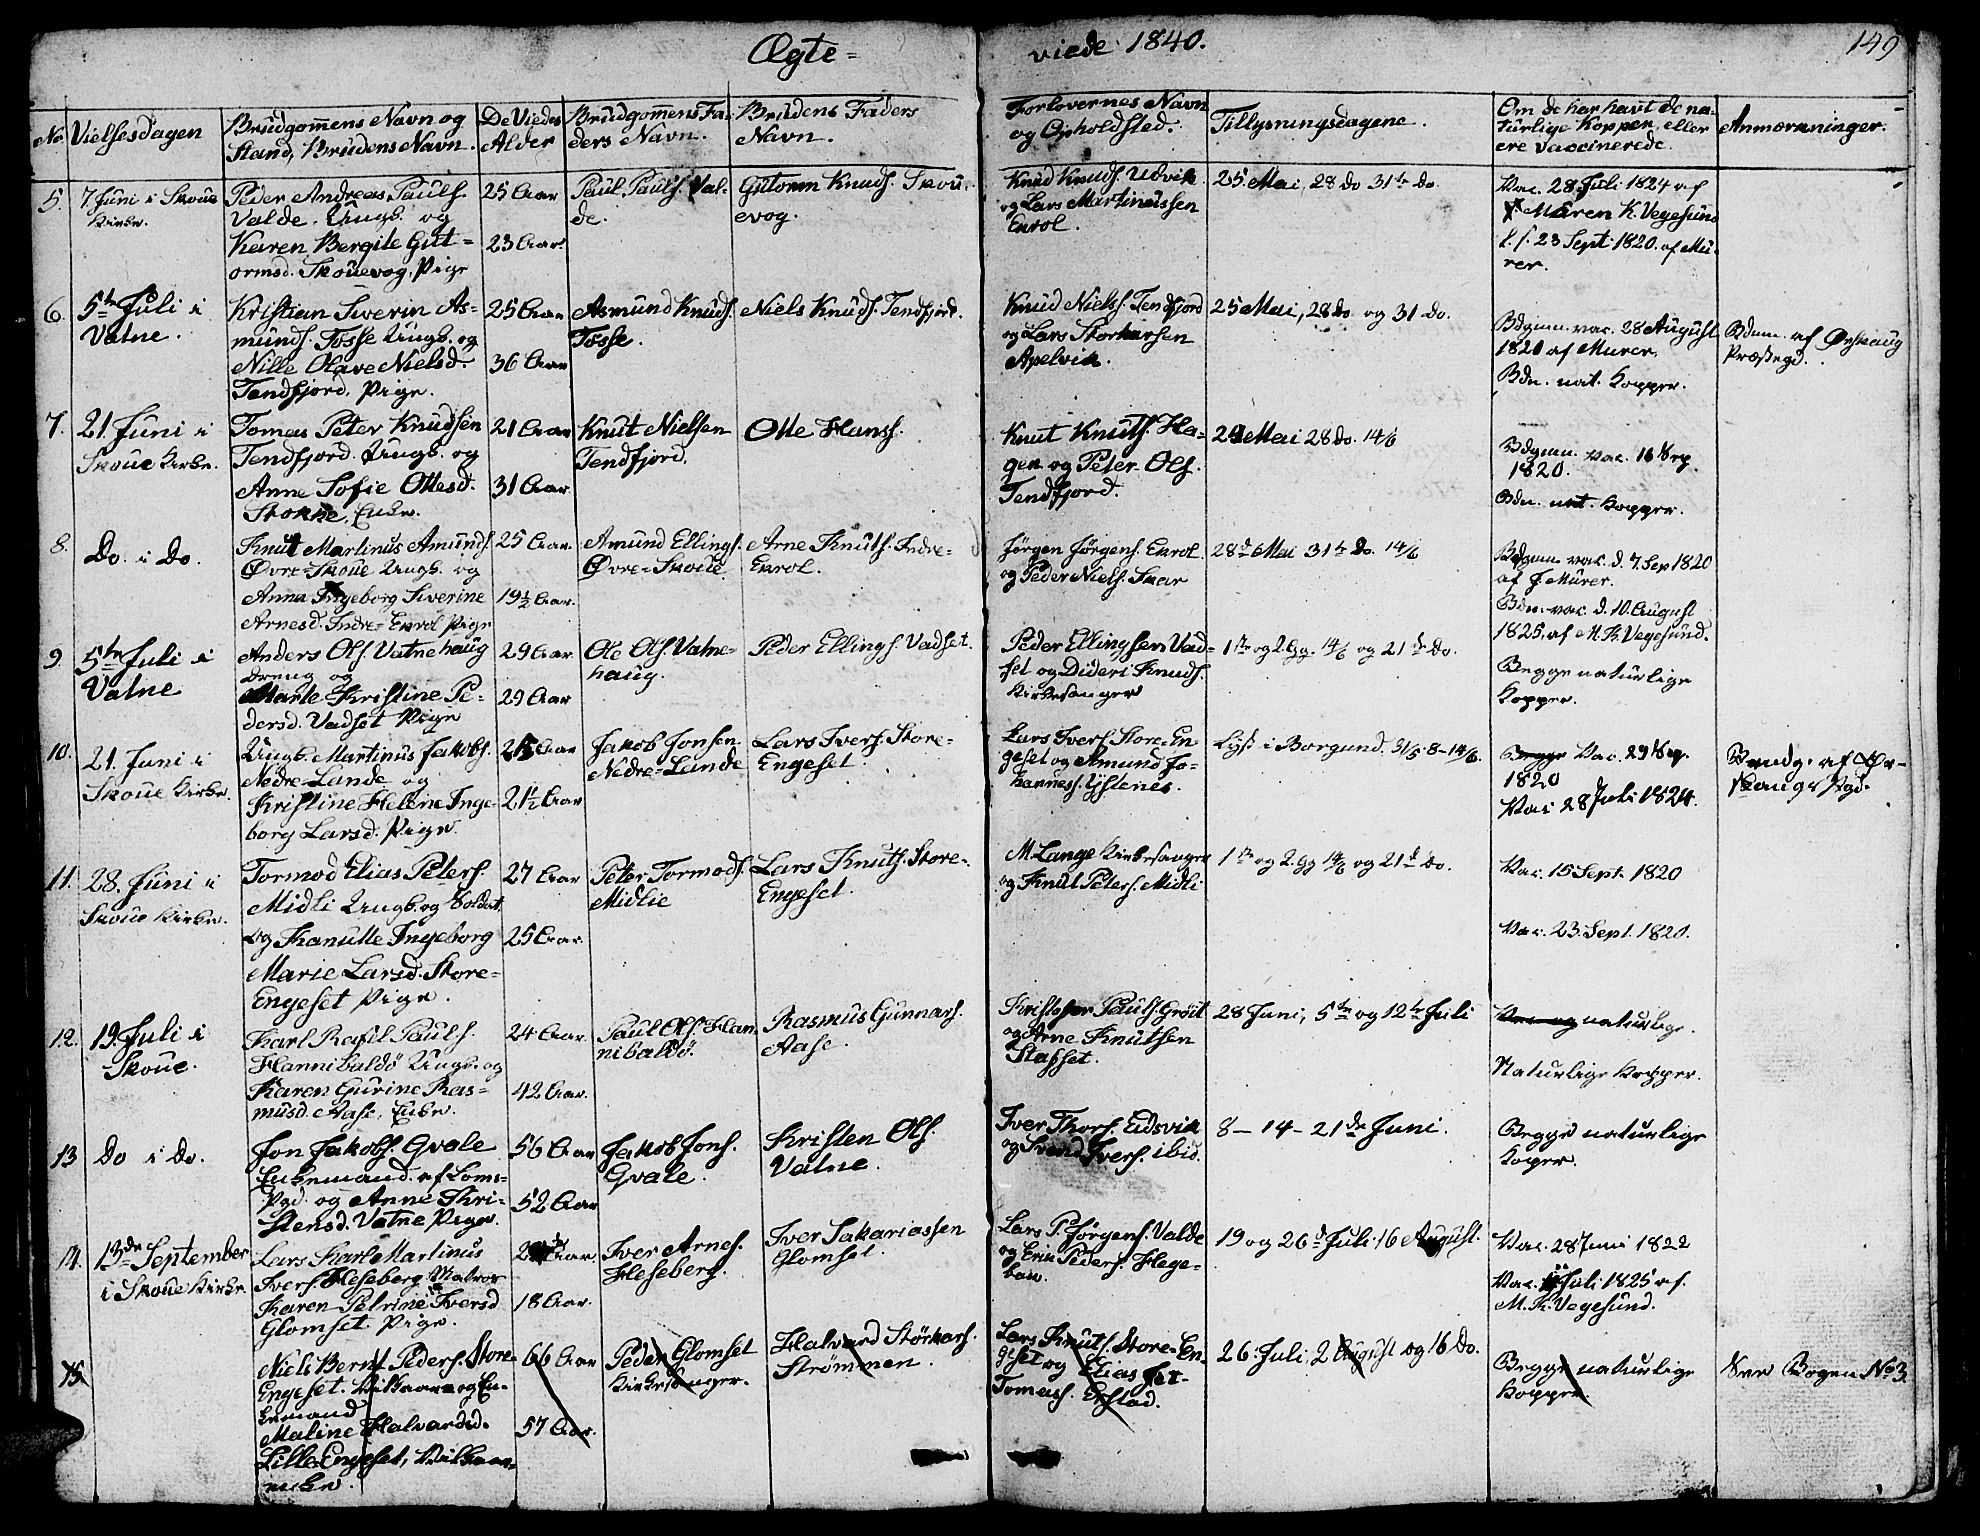 Ægte=
viede 1840.
149
No.
Vielsesdagen
Brudgom̅ens Navn og
Stand, Brudens Navn.
De Viedes
Alder
Brudgom̅ens Fa-
ders Navn.
Brudens Faders
Navn.
Forlovernes Navn
og Opholdsted.
Tillysningsdagene.
Om de har havt de na-
turlige Kopper, eller
ere vaccinerede.
Anmærkninger.
5.
7. Juni i Skoue
Kirke.
Peder Andreas Pauls.
Valde. Ungk. og
Karen Bergite Gut-
ormsd. Skouevog, Pige
25 Aar
23 Aar
Paul Pauls. Val-
de.
Gutorm Knuds. Skou-
evog.
Knud Knuds. Udvik
og Lars Martinussen
Enrol.
25. Mai, 28 Do 31te Do.
Vac. 28 Juli 1824 af
Maren K. Vegesund
23 Sept. 1820. af Mu-
rer.
6.
5te Juli i
Vatne.
Kristian Sverin As-
munds. Fosse Ungk. og
Nille Olave Nielsd.
Tendfjord. Pige.
25 Aar
36 Aar
Asmund Knuds.
Fosse.
Niels Knuds. Tendfjord.
Knud Niels. Tendfjord
og Lars Storkarsen
Apelvik.
25 Mai, 28 Do og 31 Do.
Bdgm. vac. 28 August
1820 af Murer.
Bdn. nat. Kopper.
Bdm. af Ørskaug
Præstegd.
7.
21. Juni i
Skoue Kirke.
Tomas Peter Knudsen
Tendfjord. Ungk. og
Anne Sofie Ottesd.
Stokke, Enke.
21 Aar
31 Aar
Knut Nielsen
Tendfjord.
Otte Hans.
Knut Knuts. Ha-
gen og Peter Ols.
Tendfjord.
24 Mai 28 Do. 14/6
Bdgm. Vac. 16 Sep.
1820.
Bdn. nat. Kopper.
8.
Do. i Do.
Knut Martinus Amunds.
Øvre-Skoue Ungk. og
Anna Ingeborg Siverine
Arnesd. Indre-Enrol Pige
25 Aar.
19½ Aar.
Amund Ellings.
Øvre-Skoue
Arne Knuts. Indre-
Enrol.
Jørgen Jørgens. Enrol
og Peder Niels. Skar
28de Mai 31te Do. 14/6
Bdgm. vac. d. 7. Sep 1820
af J. Murer.
Bdn. vac. d. 10. August
1825, af M. K. Vegesund.
9.
5te Juli i
Vatne
Anders Ols. Vatnehaug
Dreng og
Marte Kristine Pe-
dersd. Vadset Pige
29 Aar
29 Aar
Ole Ols. Vatne-
haug.
Peder Ellings. Vadset.
Peder Ellingsen Vad-
set og Dideri Knuds.
Kirkesanger
1te og 2. Gg. 14/6 og 21de Do.
Begge naturlige
Kopper.
10.
21. Juni i
Skoue Kirke.
Ungk. Martinus Jakobs.
Nedre-Lande og
Kristine Helene Inge-
borg Larsd. Pige
25 Aar
21½ Aar.
Jakob Jonsen
Nedre-Lande
Lars Ivers. Store-
Engeset.
Lars Ivers. Store-En-
geset og Amund Jo-
hanness. Ystenes.
Lyst i Borgund. 31/5 8-14/6.
Begge Vac. 29 Sep.
1820
Vac 28 Juli 1824.
Brudg. af Ør-
skaugs Pgd.
11.
28. Juni i
Skoue Kirke.
Tormod Elias Peters.
Midli Ungk. og Soldat
og Hanutte Ingeborg
Marie Larsd. Store-
Engeset Pige.
27 Aar
25 Aar.
Peter Tormods.
Midlie
Lars Knuts. Store-
Engeset.
M. Lange Kirkesanger
og Knut Peters. Midli
1te og 2. Gg 14/6 og 21de Do.
Vac. 15 Sept. 1820
Vac. 23. Sept. 1820.
12.
19. Juli i
Skoue.
Karl Pauls.
Hannibaldø Ungk. og
Karen Gurine Ras-
musd. Aase, Enke.
24 Aar.
42 Aar.
Paul Ols. Han
nibaldø.
Rasmus Gunnars.
Aase.
Kristofer Pauls. Grøit
og Arne Knutsen
Slasset.
28 Juni, 5te og 12te Juli
naturlige.
Naturlige Kopper.
13
Do i Do.
Jon Jakobs. Gvale
Enkemand. af Loms-
Pgd. og Anne Kri-
stensd. Vatne Pige.
56 Aar
52 Aar
Jakob Jons.
Gvale.
Kristen Ols.
Vatne.
Iver Thors. Eidsvik
og Svend Ivers. ibid.
8 – 14 – 21de Juni.
Begge naturlige
Koper.
14.
13de September
i Skoue Kirke.
Lars Karl Martinus
Ivers. Heseberg Matros
Karen Petrine Iversd
Glomset Pige.
Aar.
18 Aar.
Iver Arnes.
Heseberg.
Iver Sakariassen
Glomset.
Lars P. Jørgens. Valde
og Erik Peders. Hege-
ban.
19 og 26de Juli. 16 August.
Vac. 28 Juni 1822
Vac. Juli 1825 af.
M. K. Vegesund.
15.
Niels Bernt Peders. Store-
Engeset. Vilkaarm. og En-
kemand
Maline Halvardsd.
Lille-Engeset, Vilkaar-
enke.
66 Aar
57 Aar.
Peder Glomset
Kirkesanger.
Halvard Störkars.
Strømmen.
Lars Knuts. Store-En-
geset og Elias
Tomass. Ekstad.
26. Juli, 2 August og 16 Do.
Begge naturlige
Kopper.
See Bogen No 3.